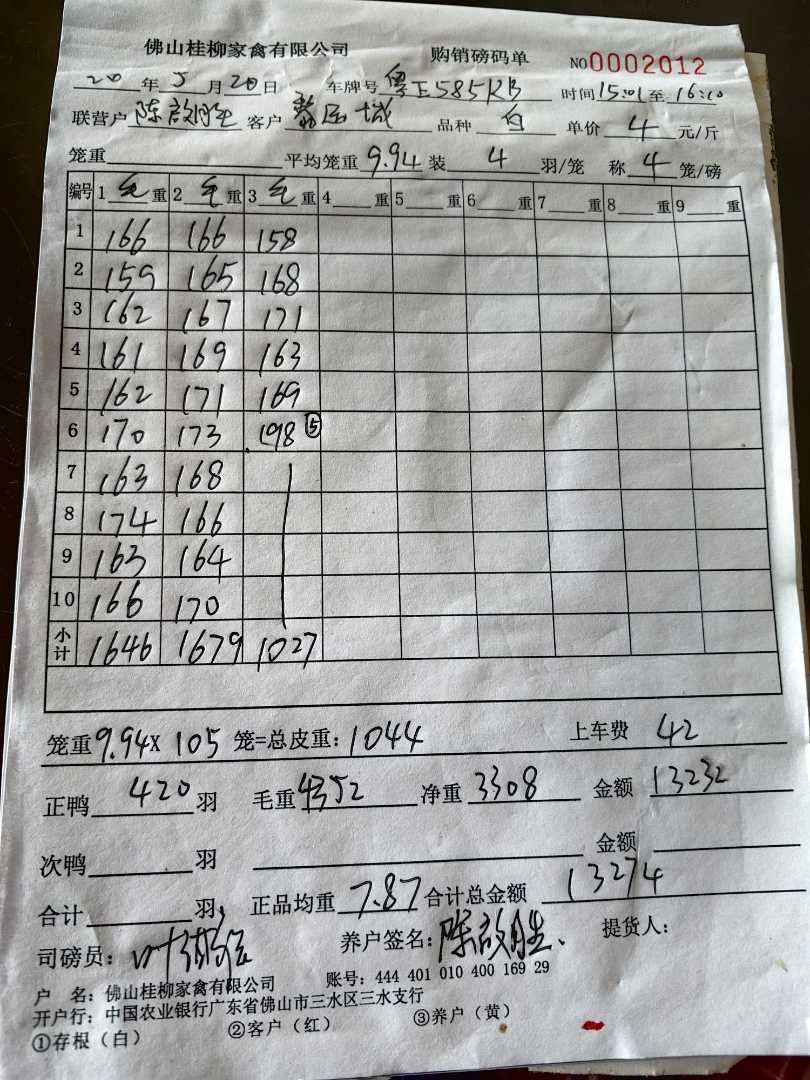 佛山桂柳家禽有限公司 购销磅码单 NO0002012
20 年 5 月 20 日 车牌号 粤E585KB 时间 15:01 至 16:10
联营户 陈啟胜 客户 品种 白 单价 4 元/斤
笼重 平均笼重 9.94 装 4 羽/笼 称 4 笼/磅
编号 1 毛 重 2 毛 重 3 毛 重 4 重 5 重 6 重 7 重 8 重 9 重
1 166 166 158
2 159 165 168
3 162 167 171
4 161 169 163
5 162 171 169
6 170 173 198 ⑤
7 163 168
8 174 166
9 163 164
10 166 170
小计 1646 1679 1027
笼重 9.94 X 105 笼=总皮重: 1044 上车费 42
正鸭 420 羽 毛重 4352 净重 3308 金额 13232
次鸭 羽 金额
合计 羽, 正品均重 7.87 合计总金额 13274
司磅员: 养户签名: 陈啟胜 提货人:
户 名: 佛山桂柳家禽有限公司 账号: 444 401 010 400 169 29
开户行: 中国农业银行广东省佛山市三水区三水支行
①存根(白) ②客户(红) ③养户(黄)